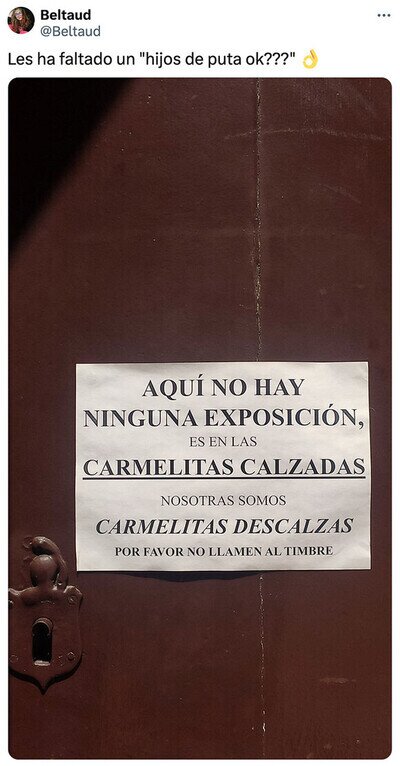 Beltaud
@Beltaud
Les ha faltado un "hijos de puta ok???" 👌
AQUÍ NO HAY
NINGUNA EXPOSICIÓN,
ES EN LAS
CARMELITAS CALZADAS
NOSOTRAS SOMOS
CARMELITAS DESCALZAS
POR FAVOR NO LLAMEN AL TIMBRE